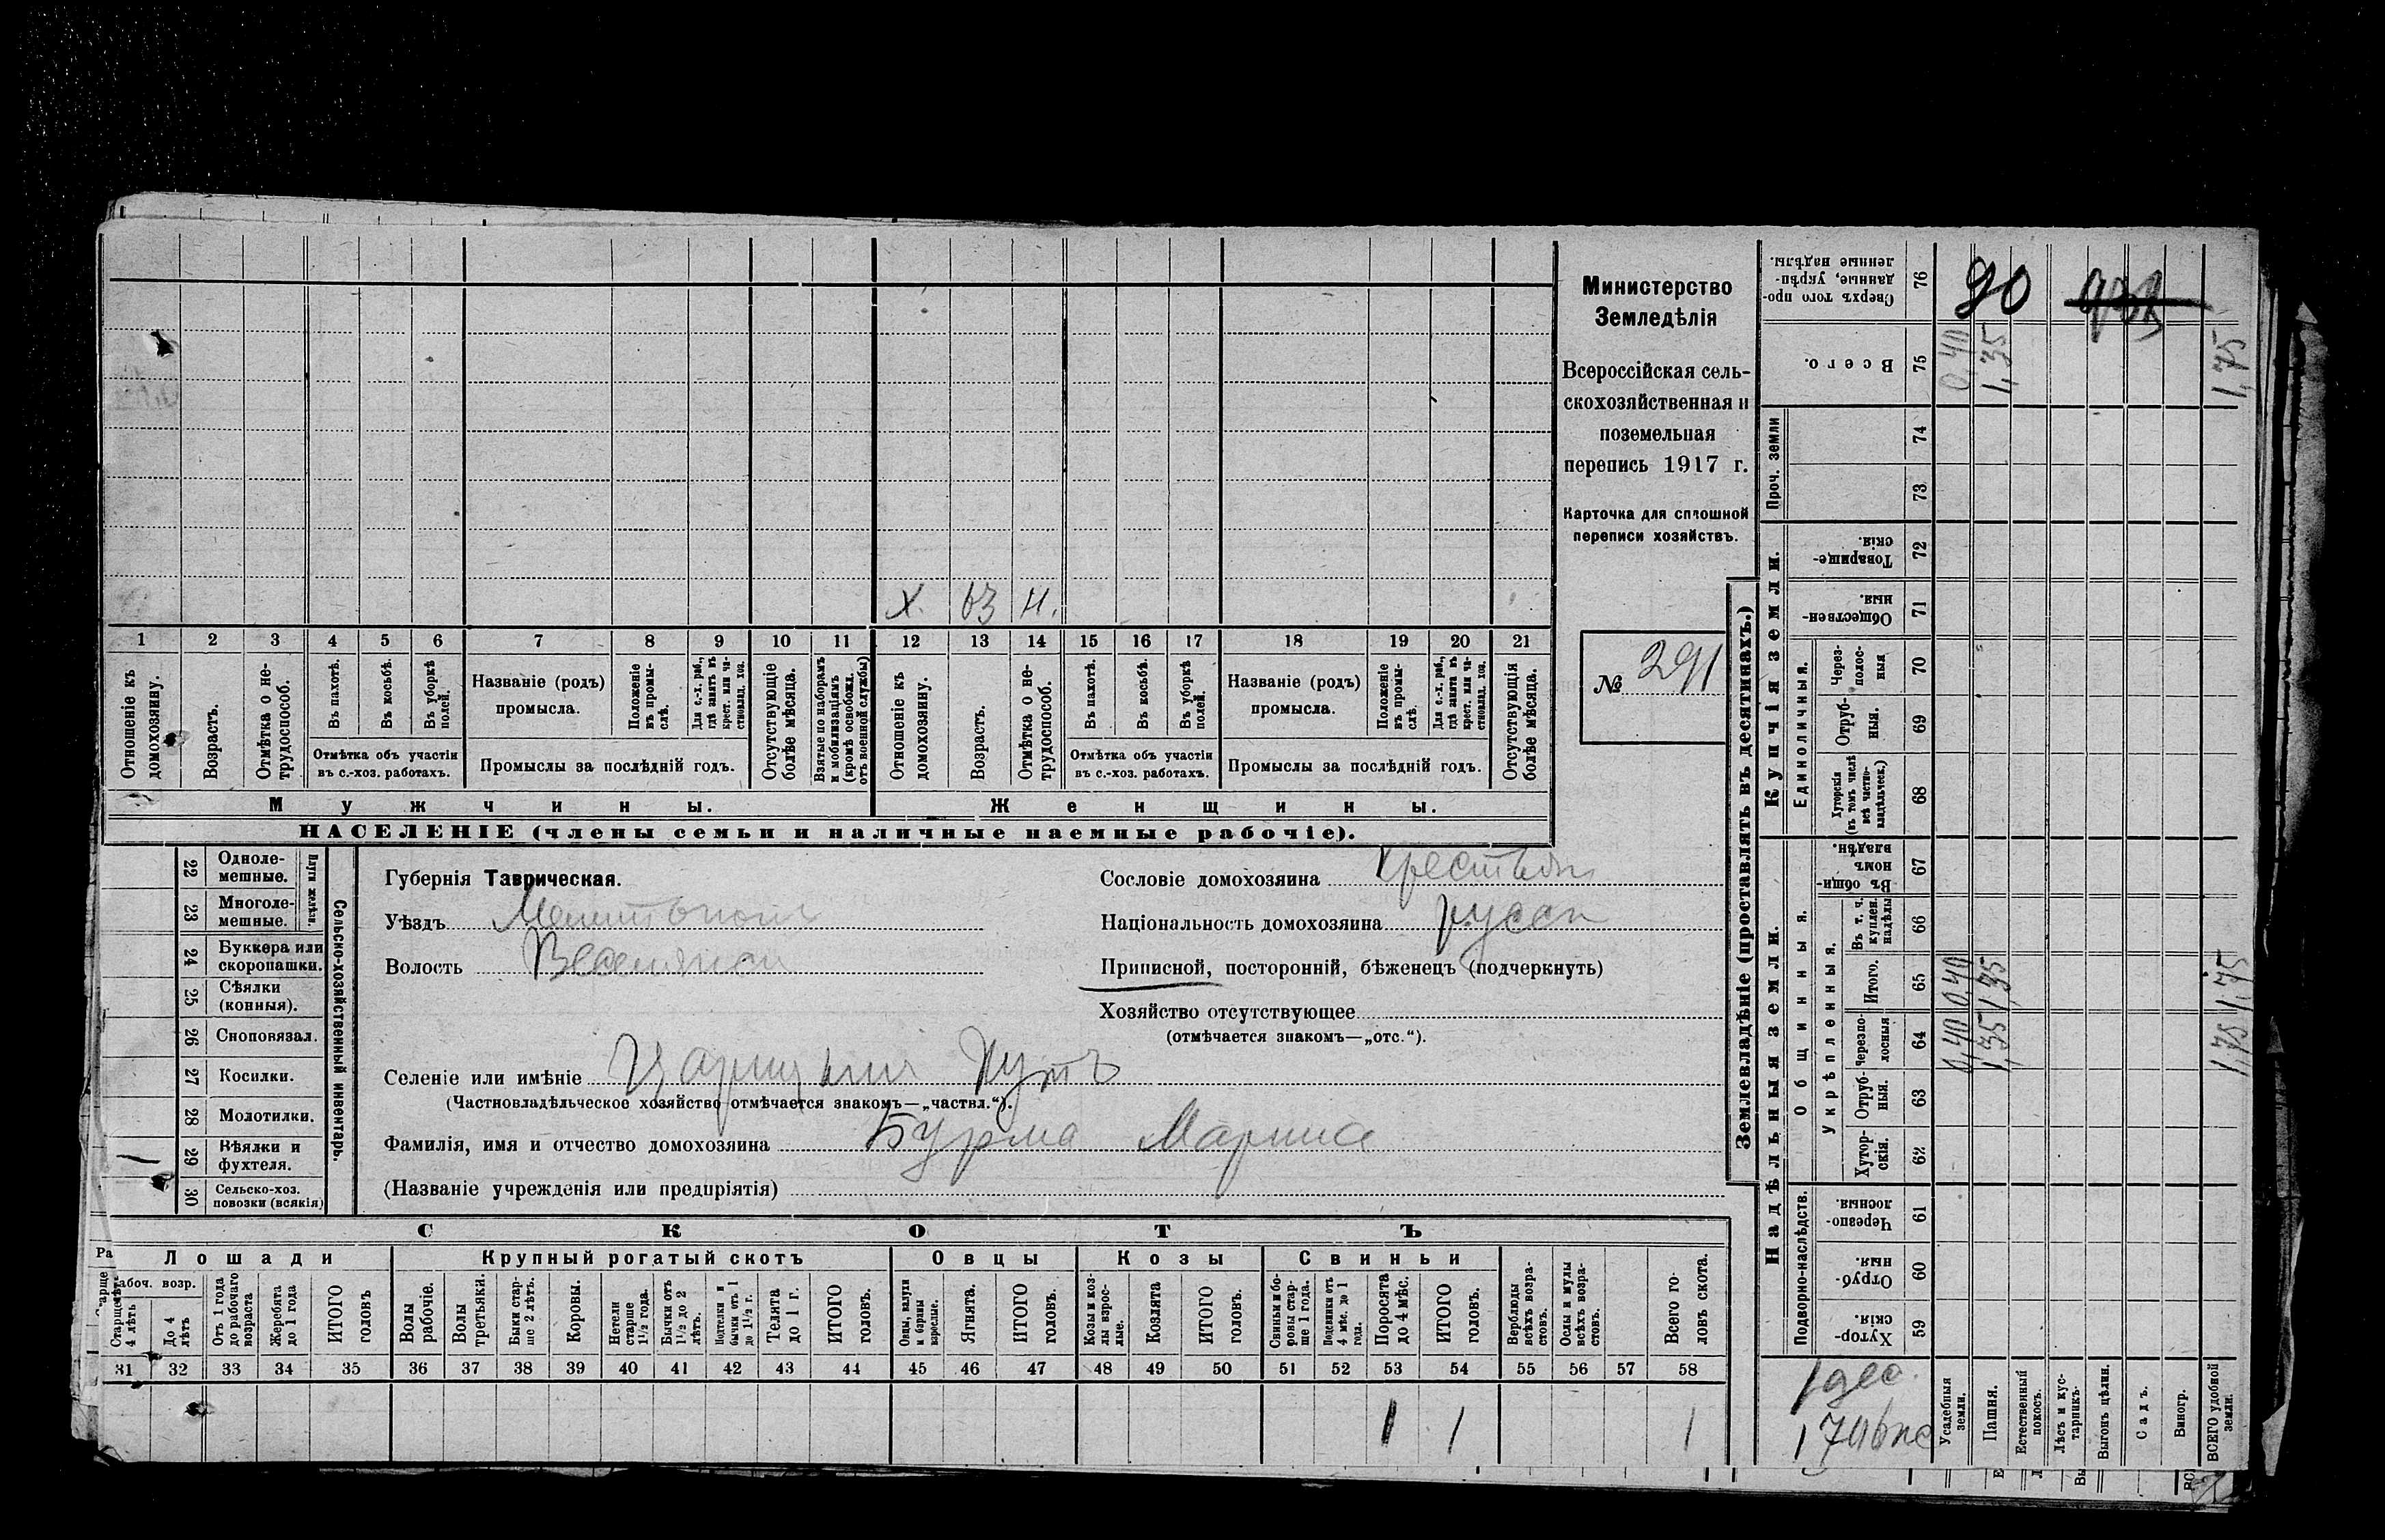 Министерство
Земледѣлія
Всероссійская сель-
скохозяйственная и
поземельная
перепись 1917 г.
Карточка для сплошной
переписи хозяйствъ.
№ 291
X. 63 н.
1 2 3 4 5 6 7 8 9 10 11 12 13 14 15 16 17 18 19 20 21
Отношеніе къ домохозяину.
Возрастъ.
Отмѣтка о не-трудоспособ.
Въ пахотѣ.
Въ косьбѣ.
Въ уборкѣ полей.
Отмѣтка объ участіи
въ с.-хоз. работахъ.
Названіе (родъ)
промысла.
Положеніе въ промы-слѣ.
Для с.-х. раб., гдѣ занятъ въ крест. или ча-стновлад. хоз.
Промыслы за послѣдній годъ.
Отсутствующіе болѣе мѣсяца.
Взятые по наборамъ и мобилизаціямъ (кромѣ освобожд. отъ военной службы)
Отношеніе къ домохозяину.
Возрастъ.
Отмѣтка о не-трудоспособ.
Въ пахотѣ.
Въ косьбѣ.
Въ уборкѣ полей.
Отмѣтка объ участіи
въ с.-хоз. работахъ.
Названіе (родъ)
промысла.
Положеніе въ промы-слѣ.
Для с.-х. раб., гдѣ занята въ крест. или ча-стновлад. хоз.
Промыслы за послѣдній годъ.
Отсутствующія болѣе мѣсяца.
Мужчины.
Женщины.
НАСЕЛЕНІЕ (члены семьи и наличные наемные рабочіе).
Сельско-хозяйственный инвентарь.
Плуги желѣзн.
22 Одноле-мешные.
23 Многоле-мешные.
24 Буккера или скоропашки.
25 Сѣялки (конныя).
26 Сноповязал.
27 Косилки.
28 Молотилки.
29 Вѣялки и фухтеля.
30 Сельско-хоз. повозки (всякія)
Губернія Таврическая.
Уѣздъ
Волость
Селеніе или имѣніе Царицынъ Кутъ
(Частновладѣльческое хозяйство отмѣчается знакомъ—„частвл.“).
Фамилія, имя и отчество домохозяина Бурма Марина
(Названіе учрежденія или предпріятія)
Сословіе домохозяина крестьян
Національность домохозяина русск
Приписной, посторонній, бѣженецъ (подчеркнуть)
Хозяйство отсутствующее
(отмѣчается знакомъ—„отс.“).
СКОТЪ
Лошади
Крупный рогатый скотъ
Овцы
Козы
Свиньи
Рабоч. возр.
Старше 4 лѣтъ
До 4 лѣтъ
Отъ 1 года до рабочаго возраста
Жеребята до 1 года
ИТОГО головъ
Волы рабочіе.
Волы третьяки.
Быки стар-ше 2 лѣтъ.
Коровы.
Нетели старше 1½ года.
Бычки отъ 1½ до 2 лѣтъ.
Подтелки и бычки отъ 1 до 1½ г.
Телята до 1 г.
ИТОГО головъ.
Овцы, валухи и бараны взрослые.
Ягнята.
ИТОГО головъ.
Козы и коз-лы взрос-лые.
Козлята
ИТОГО головъ.
Свиньи и бо-ровы стар-ше 1 года.
Подсвинки отъ 4 мѣс. до 1 года.
Поросята до 4 мѣс.
ИТОГО головъ.
Верблюды всѣхъ возра-стовъ.
Ослы и мулы всѣхъ возра-стовъ.
Всего го-ловъ скота.
31 32 33 34 35 36 37 38 39 40 41 42 43 44 45 46 47 48 49 50 51 52 53 54 55 56 57 58
1 1 1
Землевладѣніе (проставлять въ десятинахъ.)
Купчія земли.
Надѣльныя земли.
Сверхъ того про-данные, укрѣп-ленные надѣлы. 76
Всего. 75 0,40 1,35 1,75
Проч. земли 74 73
Товарище-скія. 72
Обществен-ныя. 71
Единоличныя.
Через-полос-ныя 70
Отруб-ныя. 69
Хуторскія (въ томъ числѣ всѣ частно-владѣльческ.) 68
Общинныя.
Въ общин-номъ владѣн. 67
Укрѣпленныя.
Въ т. ч. куплен. надѣлы 66
Итого. 65 0,40 1,35 1,75
Черезпо-лосныя 64 0,40 1,35 1,75
Отруб-ныя. 63
Хутор-скія. 62
Подворно-наслѣдств.
Черезпо-лосныя 61
Отруб-ныя. 60
Хутор-скія. 59
90
1 дес.
Усадебныя земли.
Пашня.
Естественный покосъ.
Лѣсъ и кус-тарникъ.
Выгонъ цѣлин.
Садъ.
Виногр.
ВСЕГО удобной земли.